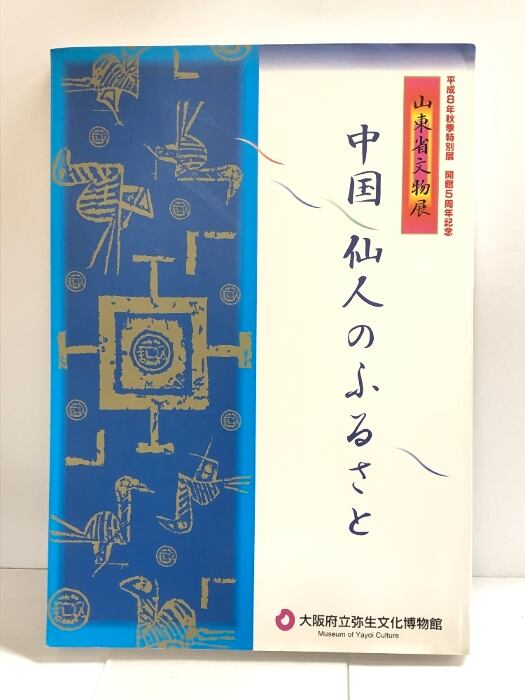 平成8年秋季特別展 開館5周年記念
山東省文物展
中国 仙人のふるさと
大阪府立弥生文化博物館
Museum of Yayoi Culture